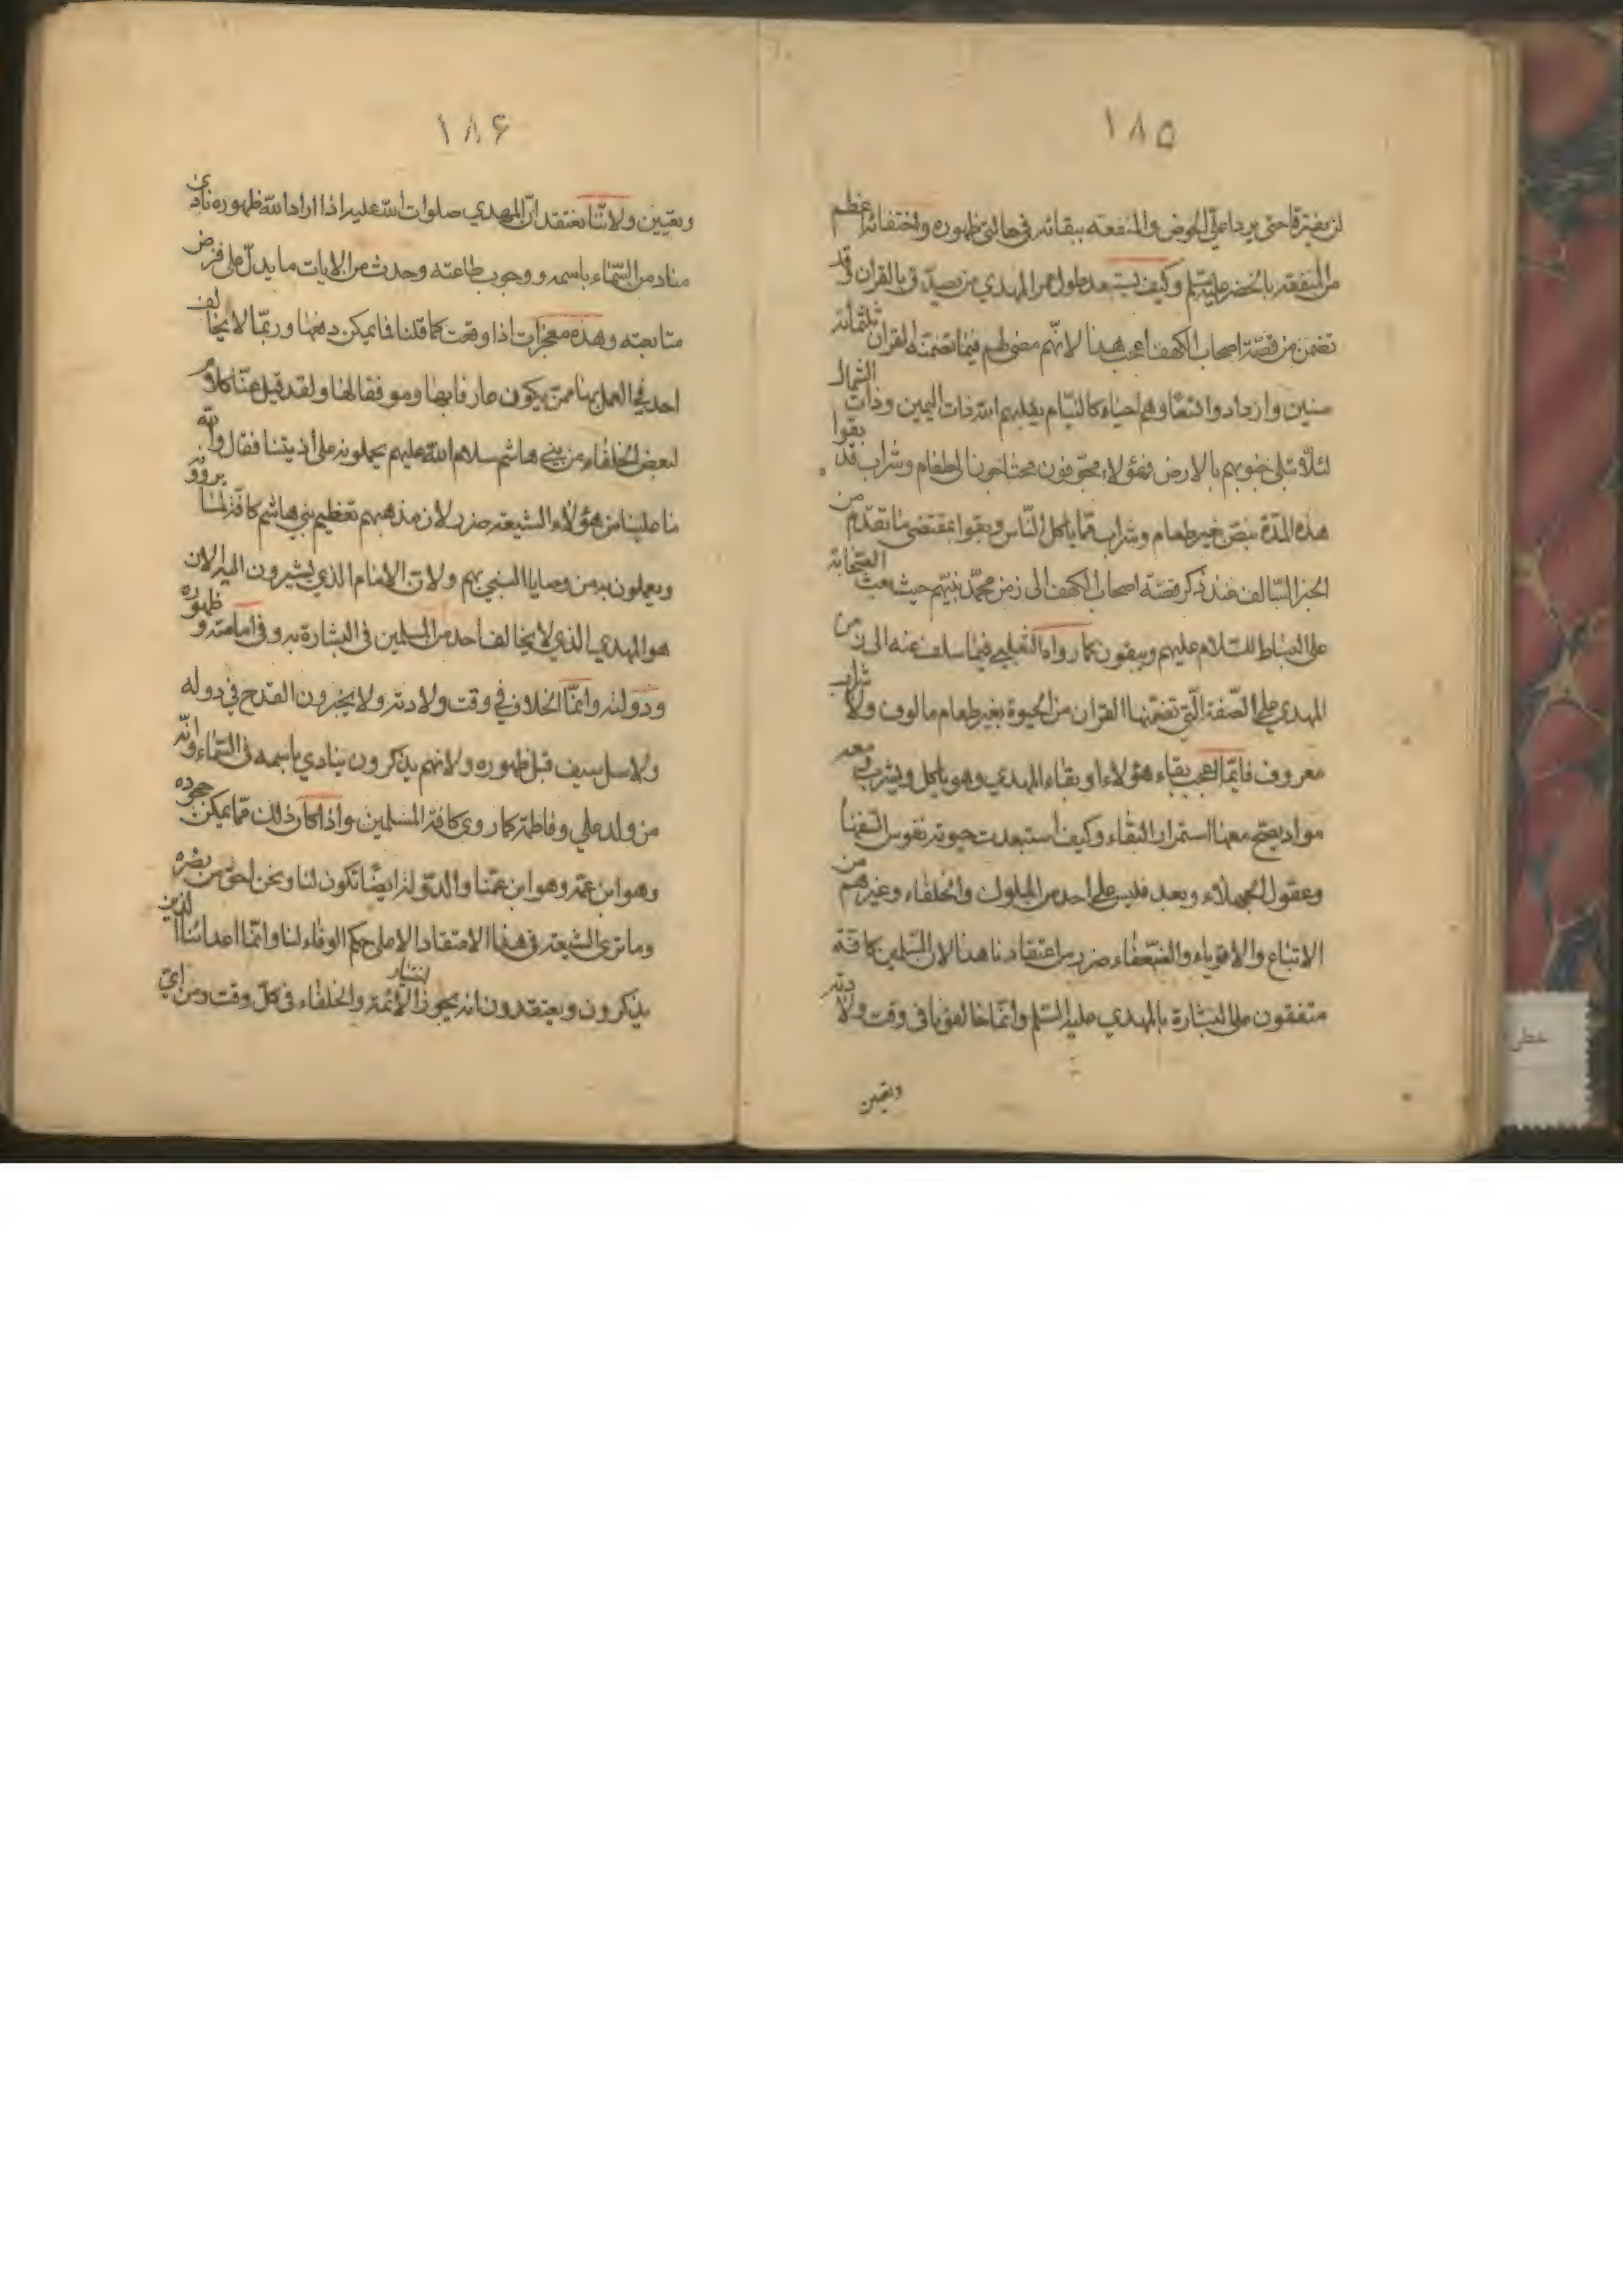 ١٨٥
لن يفترقا حتى يردا علي الحوض والمنفعة ببقائه في حالتي ظهوره واختفائه اعظم
من المنفعة بالخضر عليه السلم وكيف يستبعد طول عمر المهدي من يصدّق بالقران وقد
تضمن من قصّة اصحاب الكهف اعجب من هذا لانّهم مضى لهم فيما تضمنه القران ثلثمائة
سنين وازدادوا تسعًا وهم احياء كالنيّام يقلبهم الله ذات اليمين وذات الشمال
لئلّا تبلى جنوبهم بالارض فهؤلاء محتاجون الى طعام وشراب قد بقوا
هذه المدّة بنصّ غير طعام وشراب ممّا ياكل النّاس وبقوا بمقتضى ما تقدّم من
الخبر السّالف عند ذكر قصّة اصحاب الكهف الى زمن محمّد نبيّهم حيث بعث الصّحابة
على البساط للسّلام عليهم ويبقون كما رواه الثعلبي فيما سلف عنه الى زمن
المهدي على الصّفة الّتي تضمّنها القران من الحيوة بغير طعام مالوف ولا شراب
معروف فايّما اعجب بقاء هؤلاء او بقاء المهدي وهو ياكل ويشرب ومعه
مواد يصحّ معها استمرار البقاء وكيف استبعدت حيوته نفوس السّفهاء
وعقول الجهلاء وبعد فليس على احد من الملوك والخلفاء وغيرهم من
الاتباع والاقوياء والضّعفاء ضرر من اعتقادنا هذا لان المسّلمين كافّة
متفقون على البشارة بالمهدي عليه السّلم وانّما خالفونا في وقت ولادته
وتعيين
١٨۶
وتعيين ولانّنا نعتقد انّ المهدي صلوات الله عليه اذا اراد الله ظهوره نادى
مناد من السّماء باسمه ووجوب طاعته وحدث من الايات ما يدلّ على فرض
متابعته وهذه معجزات اذا وقعت كما قلنا فما يمكن دفعها وربّما لا يخالف
احد في العمل بها ممّن يكون عارفا بها وموفقا لها ولقد قيل عنّا كلام
لبعض الخلفاء من بني هاشم سلام الله عليهم يحملونه على اذيتنا فقال والله
ما علينا من هؤلاء الشيعة ضرر لان مذهبهم تعظيم بني هاشم كافّة لما يروون
ويعملون به من وصايا النبي بهم ولان الامام الذي يشيرون اليه الان
هو المهدي الذي لا يخالف احد من المسلمين في البشارة به وفي امامته وظهوره
ودولته وانّما الخلاف في وقت ولادته ولا يجيزون القدح في دوله
ولا سل سيف قبل ظهوره ولانهم يذكرون ينادي باسمه في السّماء وانّه
من ولد علي وفاطمة كما روى كافة المسلمين واذا كان ذلك ممّا يمكن جحوده
وهو ابن عمّه وهو ابن عمّنا والدّولة ايضًا تكون لنا ونحن احق من نصره
وما نرى الشيعة في هذا الاعتقاد الا على حكم الوفاء لنا وانّما اعدائنا الذين
يذكرون ويعتقدون انه يجوز اختيار الائمّة والخلفاء في كلّ وقت ومن اي